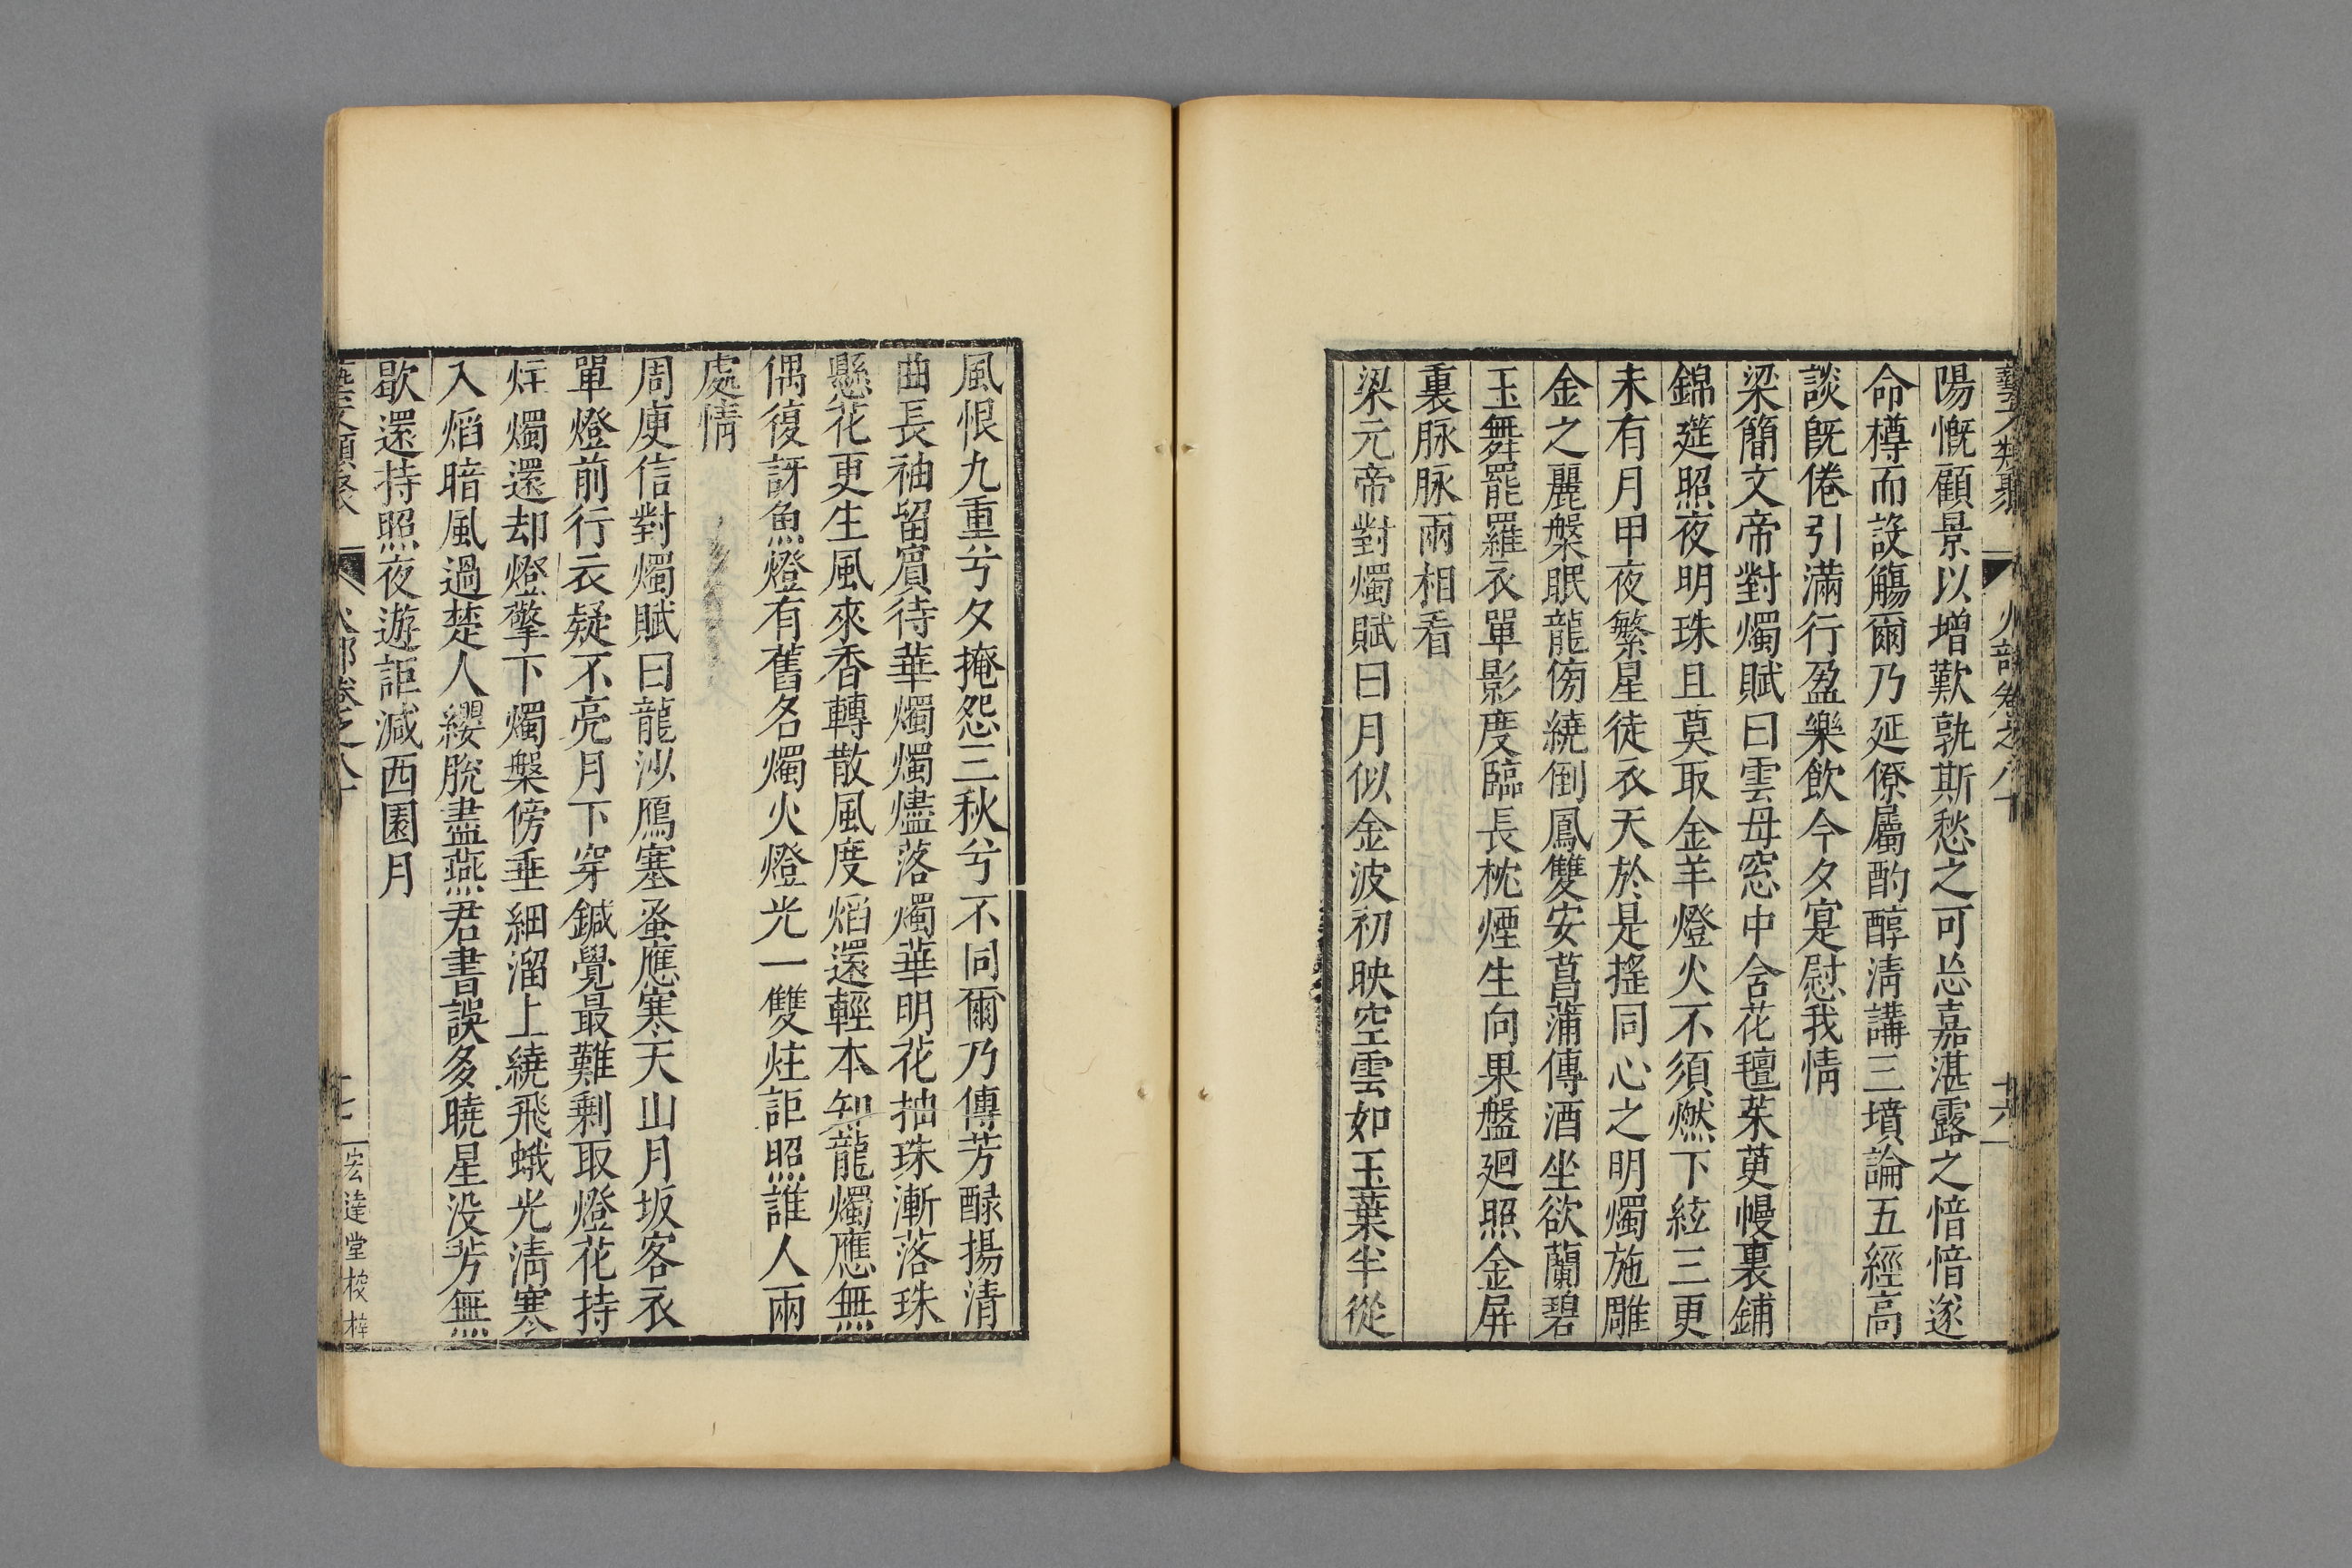 藝文類聚 火部卷之八十 十六
陽慨顧景以增歎孰斯愁之可忘嘉湛露之愔愔遂
命樽而設觴爾乃延僚屬酌醇清講三墳論五經高
談旣倦引滿行盈樂飲今夕寔慰我情
梁簡文帝對燭賦曰雲母窓中合花氊茱萸幔裏鋪
錦筵照夜明珠且莫取金羊燈火不須燃下絃三更
未有月甲夜繁星徒衣天於是搖同心之明燭施雕
金之麗槃眠龍傍繞倒鳳雙安菖蒲傳酒坐欲蘭碧
玉舞罷羅衣單影度臨長枕煙生向果盤廻照金屏
裏脉脉兩相看
梁元帝對燭賦曰月似金波初映空雲如玉葉半從
風恨九重兮夕掩怨三秋兮不同爾乃傳芳醁揚清
曲長袖留賔待華燭燭燼落燭華明花抽珠漸落珠
懸花更生風來香轉散風度焰還輕本知龍燭應無
偶復訝魚燈有舊名燭火燈光一雙炷詎照誰人兩
處情
周庾信對燭賦曰龍沙鴈塞蚤應寒天山月坂客衣
單燈前行衣疑不亮月下穿鍼覺最難剩取燈花持
炷燭還却燈擎下燭槃傍垂細溜上繞飛蛾光淸寒
入焰暗風過楚人纓脫盡燕君書誤多曉星没芳無
歇還持照夜遊詎減西園月
藝文類聚 火部卷之八十 十七 宏達堂校梓